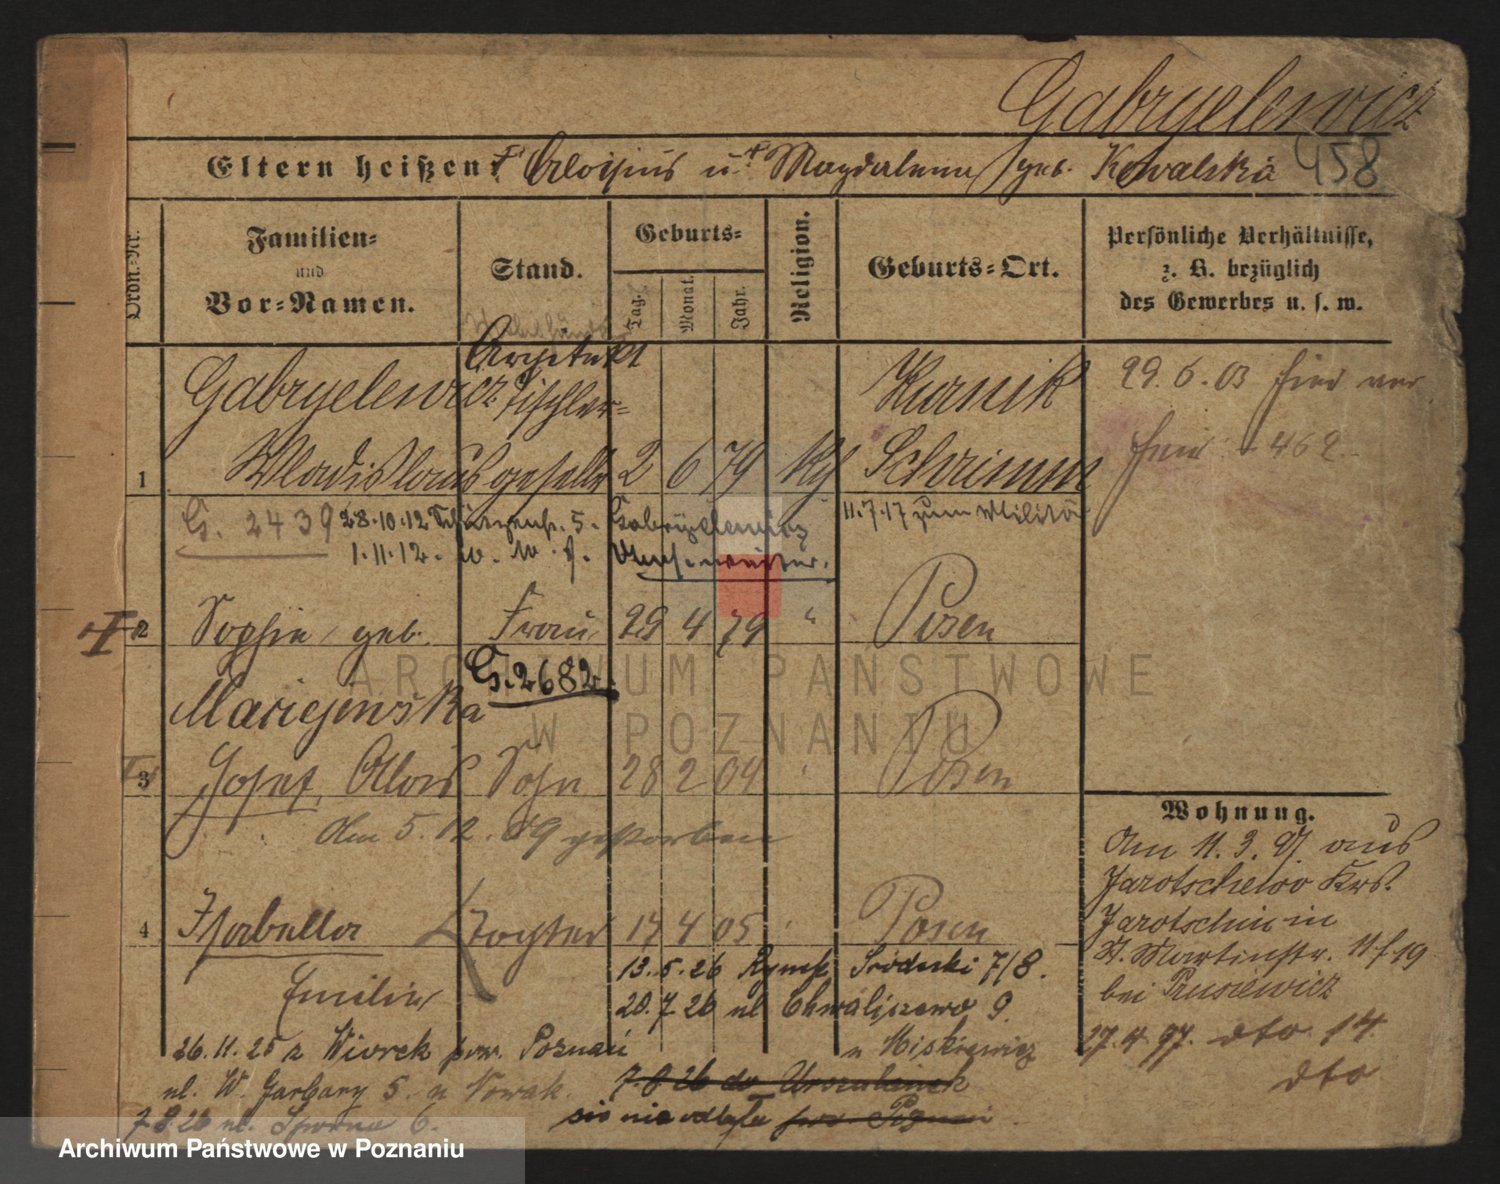 Gabryelewicz
Eltern heißen: Aloisius u. Magdalena geb. Kowalska 458
Ordn.-Nr.
Familien- und Vor-Namen.
Stand.
Geburts-
Tag.
Monat.
Jahr.
Religion.
Geburts-Ort.
Persönliche Verhältnisse,
z. B. bezüglich
des Gewerbes u. s. w.
Architekt
Gabryelewicz Tischler- Kurnik 29.6.03
1 Wladislaus geselle 2 6 79 Schrimm 462
G. 2439 28.10.12 5. Gabryelewicz 11.7.17 zum Militär
1.11.12.
2 Sophie geb. Frau 29 4 79 " Posen
G. 2682.
Maciejewska
3 Josef Alois Sohn 28 2 04 Posen
Am 5.12.09 gestorben
Wohnung.
Am 11.3.97 aus
Jarotschewo Krs.
4 Isabella Tochter 17 4 05 Posen
Jarotschin in
St. Martinstr. 11 f 19
13.5.26 Rynek Śródecki 7/8.
Emilie
bei Prusiewicz
20.7.26 ul Chwaliszewo 9.
26.11.25 z Wiorek pow. Poznań
u Miśkiewicz
27.4.97. dto 14
ul. W. Garbary 5. u Nowak.
7.8.26 do
dto
7.8.26 ul. 6.
się nie odbyła pow. Poznań
ARCHIWUM PAŃSTWOWE
W POZNANIU
Archiwum Państwowe w Poznaniu